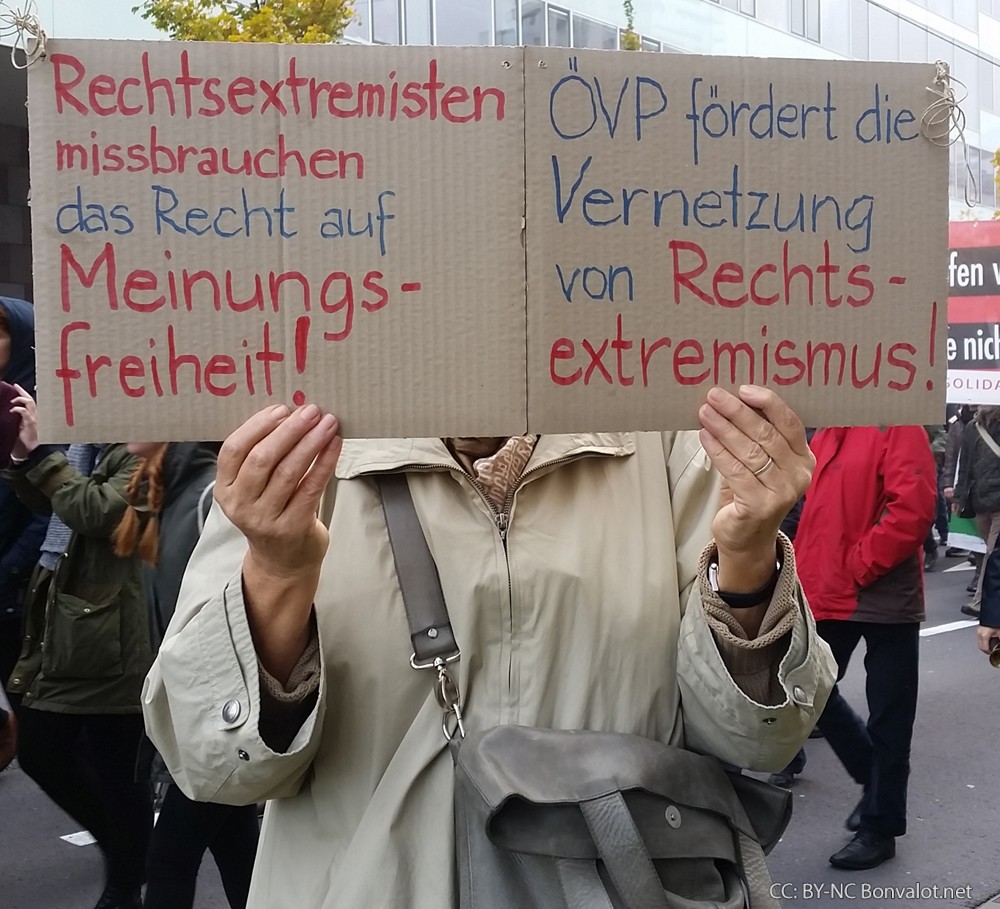 Rechtsextremisten
missbrauchen
das Recht auf
Meinungs-
freiheit!
ÖVP fördert die
Vernetzung
von Rechts-
extremismus!
fen
nich
SOLIDA
CC: BY-NC Bonvalot.net